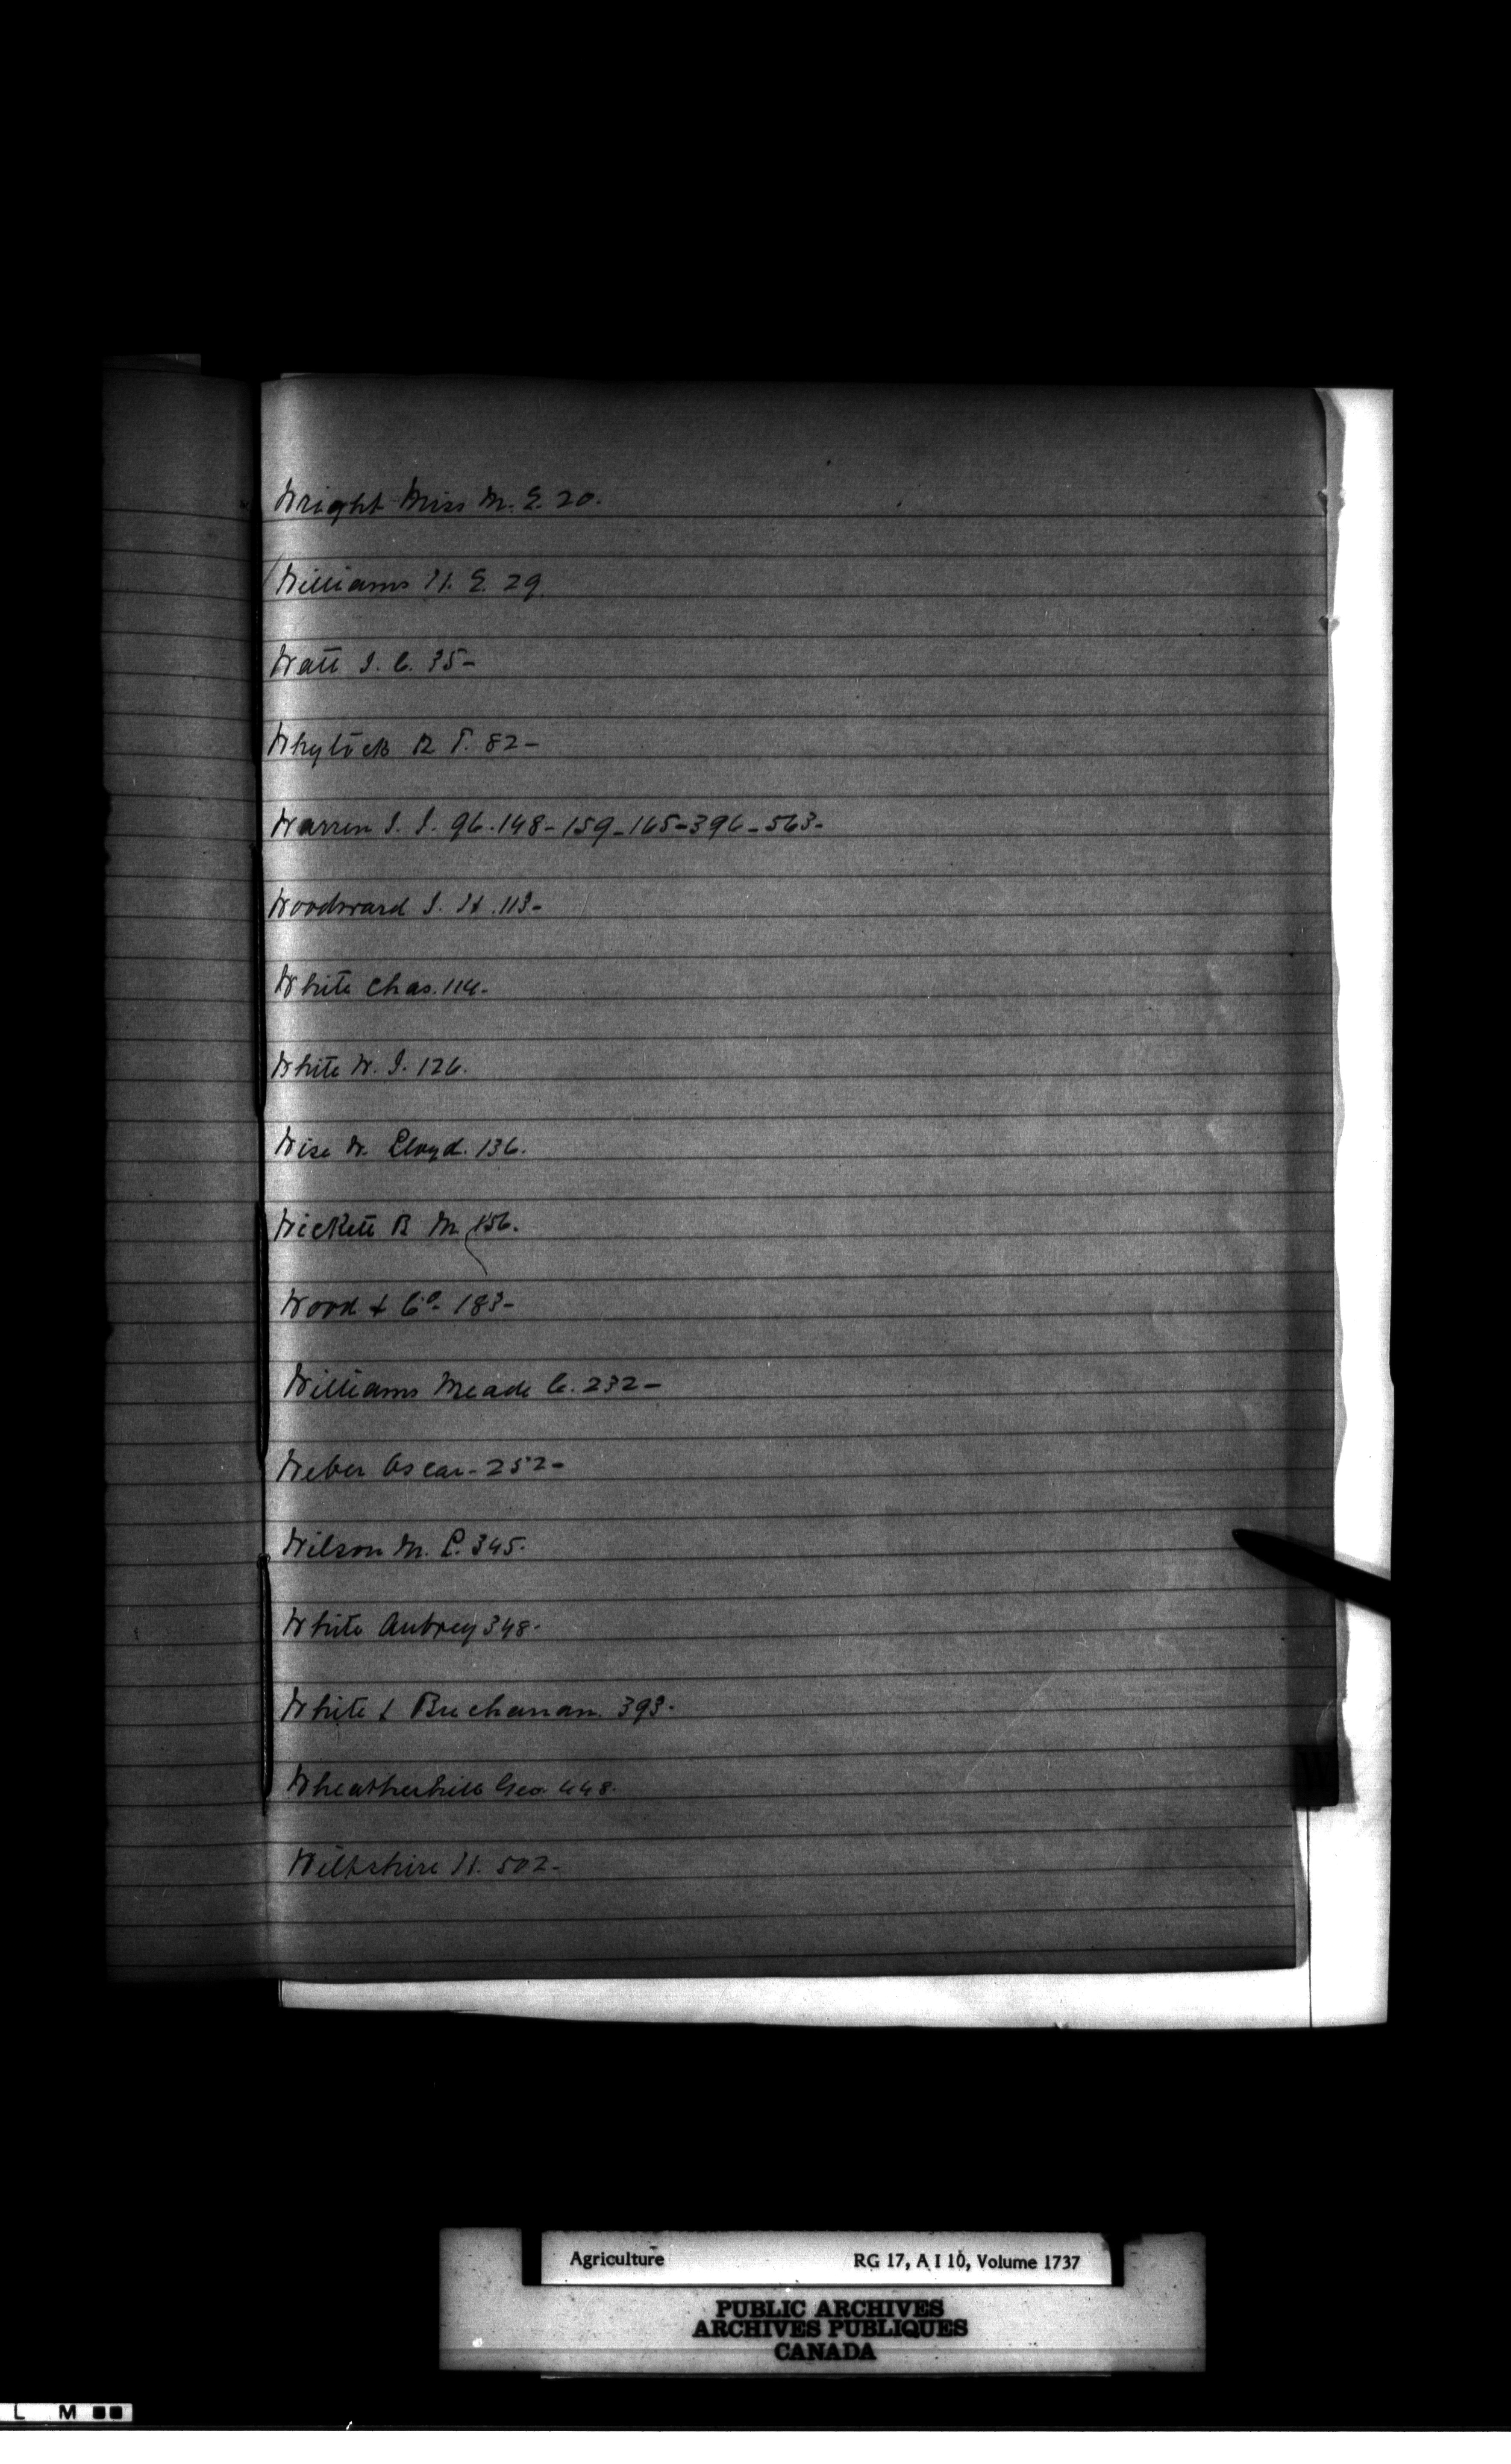 Wright Miss M. E. 20.
Williams H. E. 29
Watt J. C. 35-
Whytock R T. 82-
Warren J. J. 96-148-159-165-396-563-
Woodward J. H. 113-
White Chas. 114-
White W. J. 126.
Wise W. Lloyd. 136.
Wickett B M. 156.
Wood & Co- 183-
Williams Meade C. 232-
Weber Oscar- 252-
Wilson M. L. 345-
White Aubrey 348-
White & Buchanan. 393-
Wheatherhill Geo. 448-
Wiltshire H. 502-
W
Agriculture RG 17, A I 10, Volume 1737
PUBLIC ARCHIVES
ARCHIVES PUBLIQUES
CANADA
L M